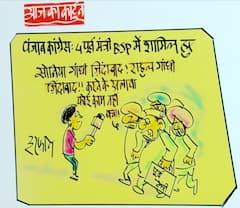 आज का कार्टून
पंजाब कांग्रेस: 4 पूर्व मंत्री BJP में शामिल हुए
सोनिया गांधी जिंदाबाद! राहुल गांधी
जिंदाबाद!! करने के अलावा
कोई काम नहीं